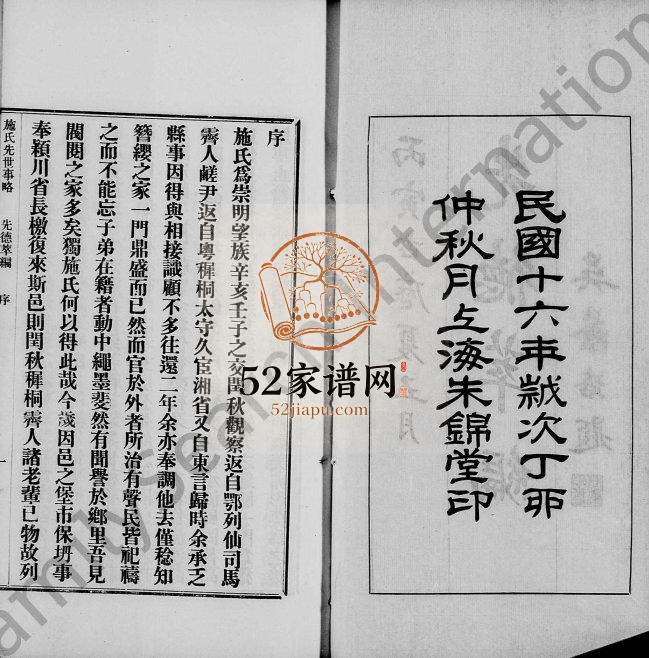 民國十六年歲次丁卯
仲秋月上海朱錦堂印
序
施氏爲崇明望族辛亥壬子之交閏秋觀察返自鄂列仙司馬
霽人鹺尹返自粵穉桐太守久宦湘省又自東言歸時余承乏
縣事因得與相接識顧不多往還二年余亦奉調他去僅稔知
簪纓之家一門鼎盛而已然而官於外者所治有聲民皆祀禱
之而不能忘子弟在籍者動中繩墨斐然有聞譽於鄉里吾見
閥閱之家多矣獨施氏何以得此哉今歲因邑之堡市保坍事
奉穎川省長檄復來斯邑則閏秋穉桐霽人諸老輩已物故列
施氏先世事略
先德萃編
序
一
52家谱网
52jiapu.com
FamilySearch International